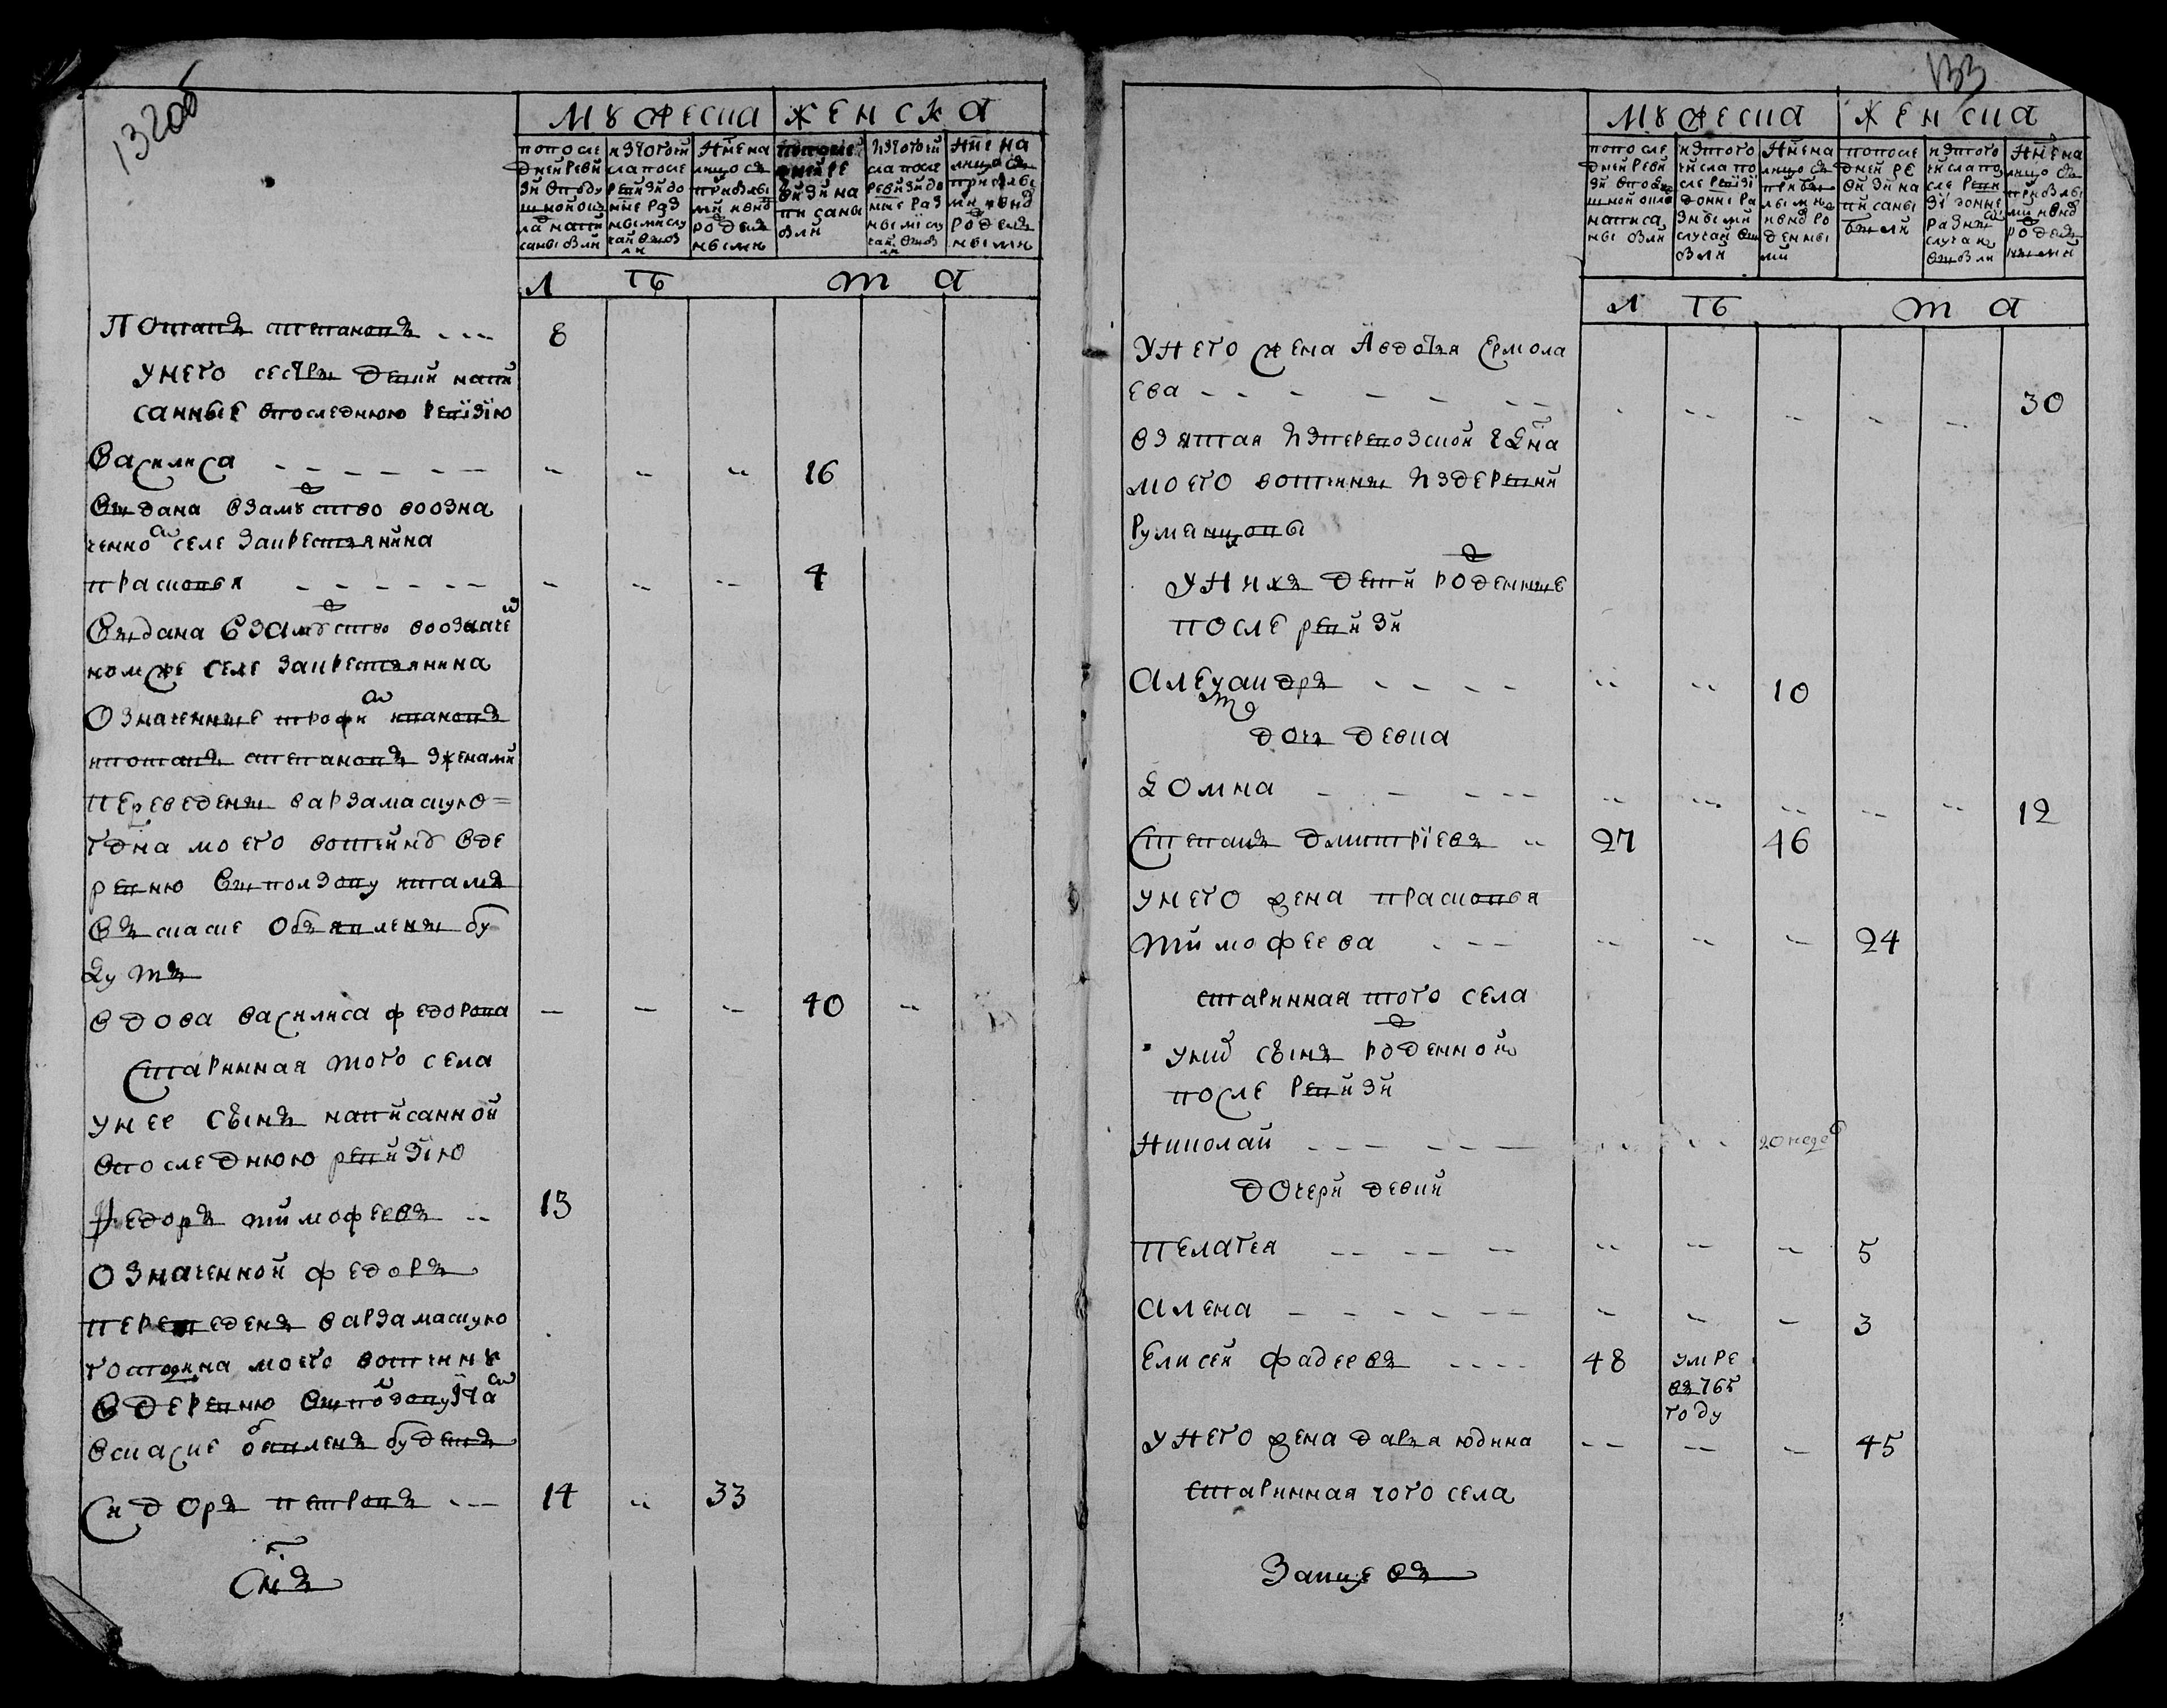 132об
мужеска женска
попосле дней реви зи вподу шной окла д напи саны были
изтого чи сла после ревизи до ныне раз ными слу чаи выбы ли
ныне на лицо съ прибылы ми и вно рожден ными
попослед ней ре визи на писаны были
изтого чи сла после ревизи до ныне раз ными слу чаи выбы ли
ныне на лицо съ прибылы ми и вно рожден ными
лѣта
Потапъ степановъ 8
унего сестры девки напи
санные впоследнюю ревизию
Василиса 16
выдана взамужство вообзна
ченном селе закрестьянина
прасковья 4
выдана взамужство вообзначе
номже селе закрестьянина
Означенные трофим ивановъ
ипотапъ степановъ зженами
переведены варзамаскую
гдна моего вотчину вде
ревню выползову итамъ
въ скаске объявлены бу
дутъ
вдова василиса федорова 40
старинная того села
унее сынъ написанной
впоследнюю ревизию
Федоръ тимофеевъ 13
Означенной федоръ
переведенъ варзамаскую
господина моего вотчину
вдеревню выползову итам
вскаске объявленъ будетъ
Сидоръ петровъ 14 33
Сиъ
133
мужеска женска
попосле дней реви зи вподу шной окла д написа ны были
изтого чи сла по сле ревизи доныне ра зными случаи вы были
ныне на лицо съ прибы лыми и вно рожденны ми
попосле дней ре визи на писаны были
изтого чи сла по сле реви зи доныне разными случаи выбыли
ныне на лицо съ прибылы ми и вно рожден ными
лѣта
унего жена Авдотья Ермола
ева 30
взятая изтерюзской гдна
моего вотчины издеревни
Румянцовы
унихъ дети рожденные
после ревизи
Александръ 10
дочь девка
домна 12
Степанъ дмитриевъ 27 46
унего жена прасковья
тимофеева 24
старинная того села
уних сынъ рожденной
после ревизи
Николай 20 недел
дочери девки
пелагея 5
алена 3
Елисей фадеевъ 48 умре въ 765 году
унего жена дарья юдина 45
старинная того села
Зайцевъ